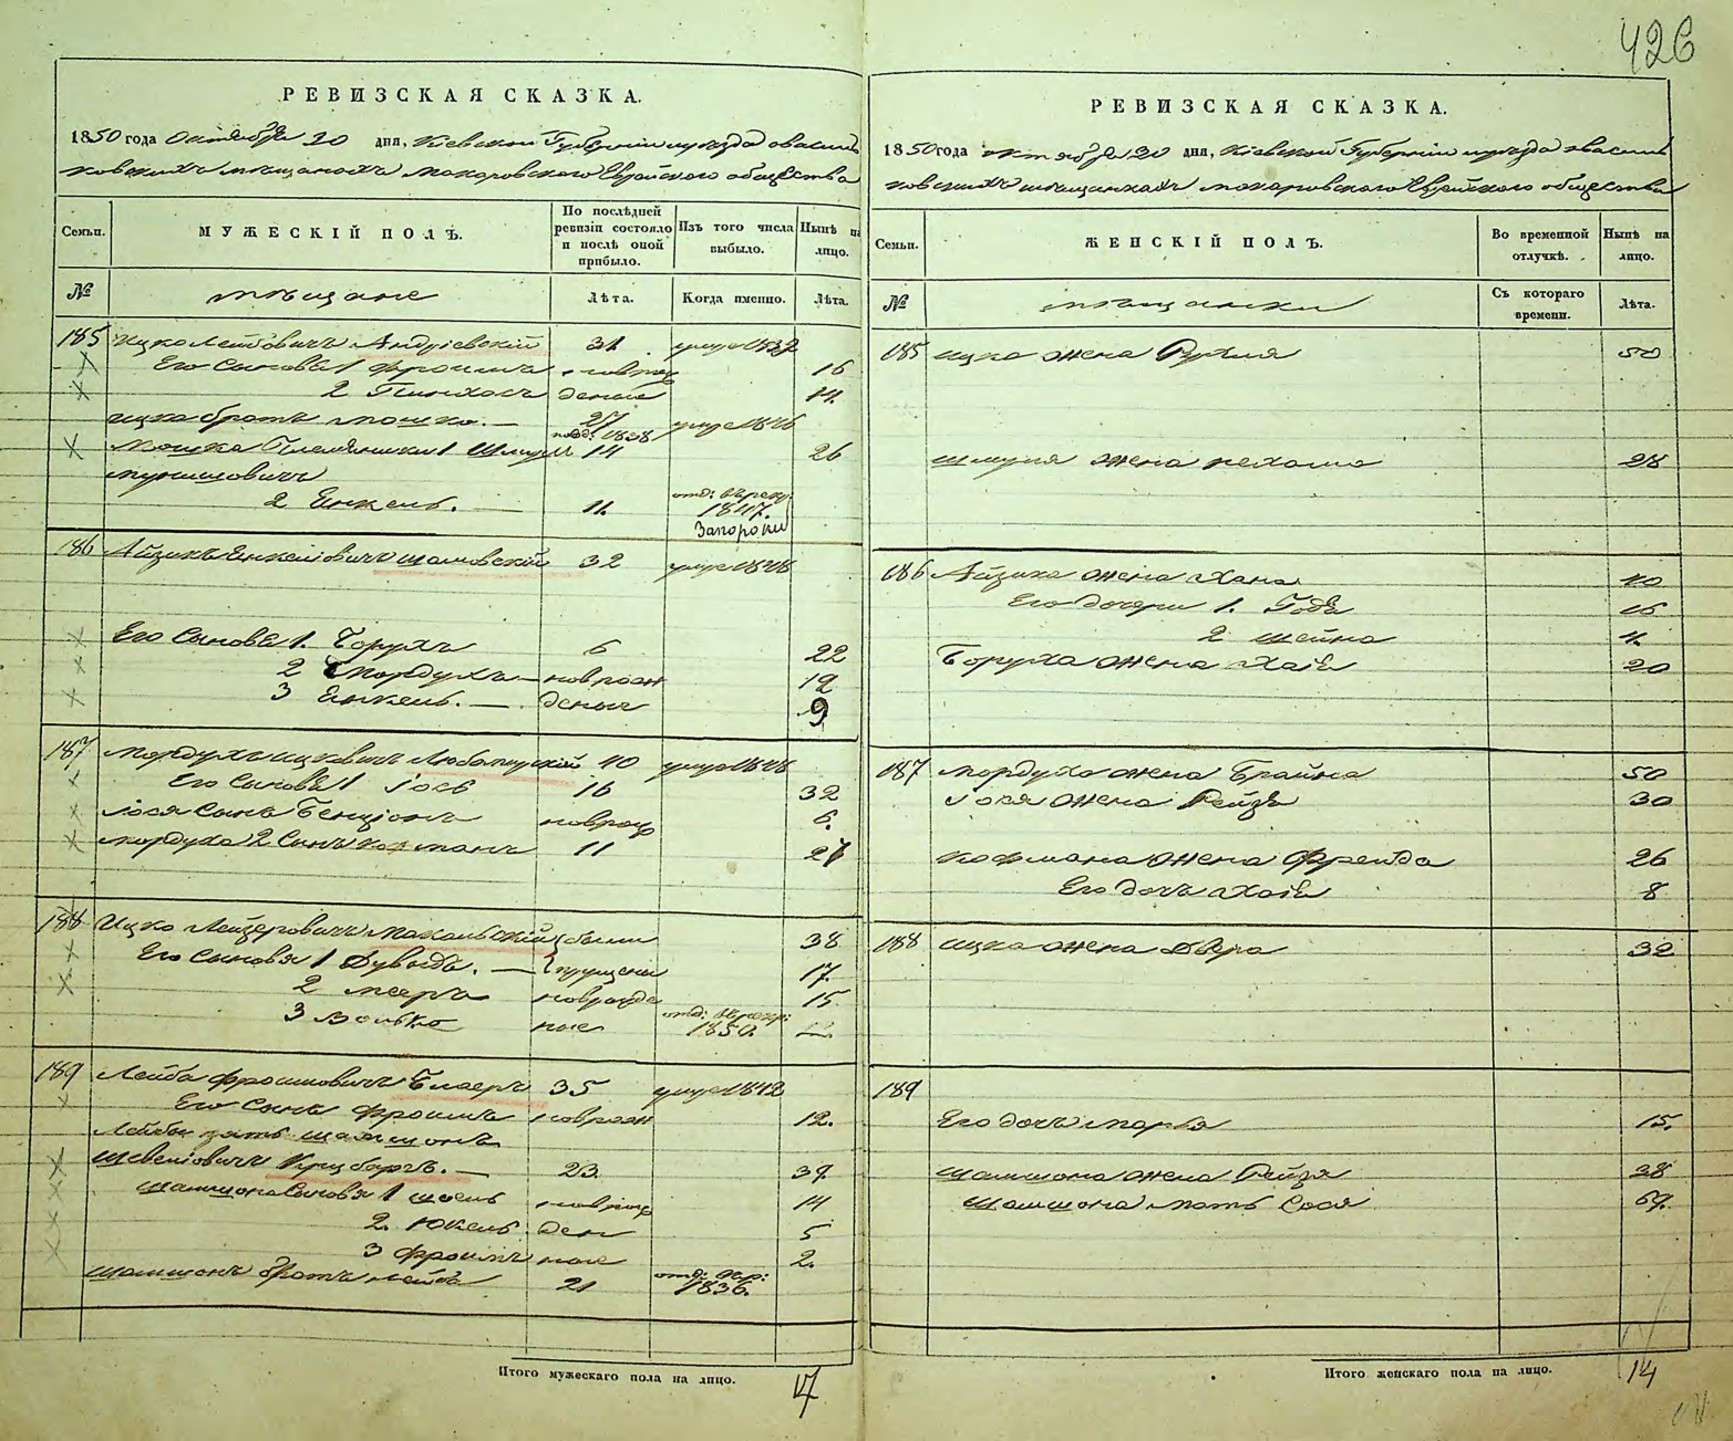 426
РЕВИЗСКАЯ СКАЗКА.
1850 года Октября 20 дня, Киевской Губернии уезда о василь
ковскихъ мещанахъ Макаровского Еврейского общества
Семьи. МУЖЕСКІЙ ПОЛЪ. По послѣдней ревизіи состояло и послѣ оной прибыло. Изъ того числа выбыло. Нынѣ на лицо.
№ мещане Лѣта. Когда именно. Лѣта.
185 Ицко Лейбовичъ Андріевскій 31
Его Сыновья 1 Фроимъ 16
2 Пинхасъ 14
Ицка братъ Мошко 27 умре 1846
Мошка Племянники 1 Шмуль 14 26
2 Енкель. 11. 1847.
Запороки
186 Айзикъ Енкелiовичъ 32 умре 1848
Его Сыновья 1. Борухъ 6 22
2 Мордухъ новрож 12
3 Енкель. деные 9
187 Мордухъ Ицковичъ 40 умре 1848
Его Сыновья 1 Iось 16 32
Iося Сынъ Бенціонъ новрож 6.
Мордуха 2 Сынъ Кофманъ 11 27
188 Ицко Лейзеровичъ были 38
Его Сыновья 1 Дувидъ. пропущены 17.
2 Мееръ новрожде 15
3 Волько ные 1850.
189 Лейба Фроимовичъ 35 умре 1842
Его Сынъ Фроимъ новрож 12.
Лейбы зять Шамшонъ
Криcбергъ. 23 39.
Шамшона Сыновья 1 14
2. Юкель ден 5
3 Фроимъ ные 2.
Шамшонъ братъ Лейба 21 1836.
Итого мужескаго пола на лицо. 17
РЕВИЗСКАЯ СКАЗКА.
1850 года октября 20 дня, Киевской Губернии уезда о василь
ковскихъ мещанкахъ Макаровского Еврейского общества
Семьи. ЖЕНСКІЙ ПОЛЪ. Во временной отлучкѣ. Нынѣ на лицо.
№ мещанки Съ котораго времени. Лѣта.
185 Ицка жена Рухля 50
Шмуля жена Нехама 28
186 Айзика жена Хана 40
Его дочери 1. Годя 16
2 Шейна 4.
Боруха жена Хая 20
187 Мордуха жена Брайна 50
Iося жена Рейзя 30
Кофмана жена Фрейда 26
Его дочь Хая 8
188 Ицка жена Двера 32
189
Его дочь Марья 15.
Шамшона жена Рейзя 38
Шамшона мать Сося 69.
Итого женскаго пола на лицо. 14